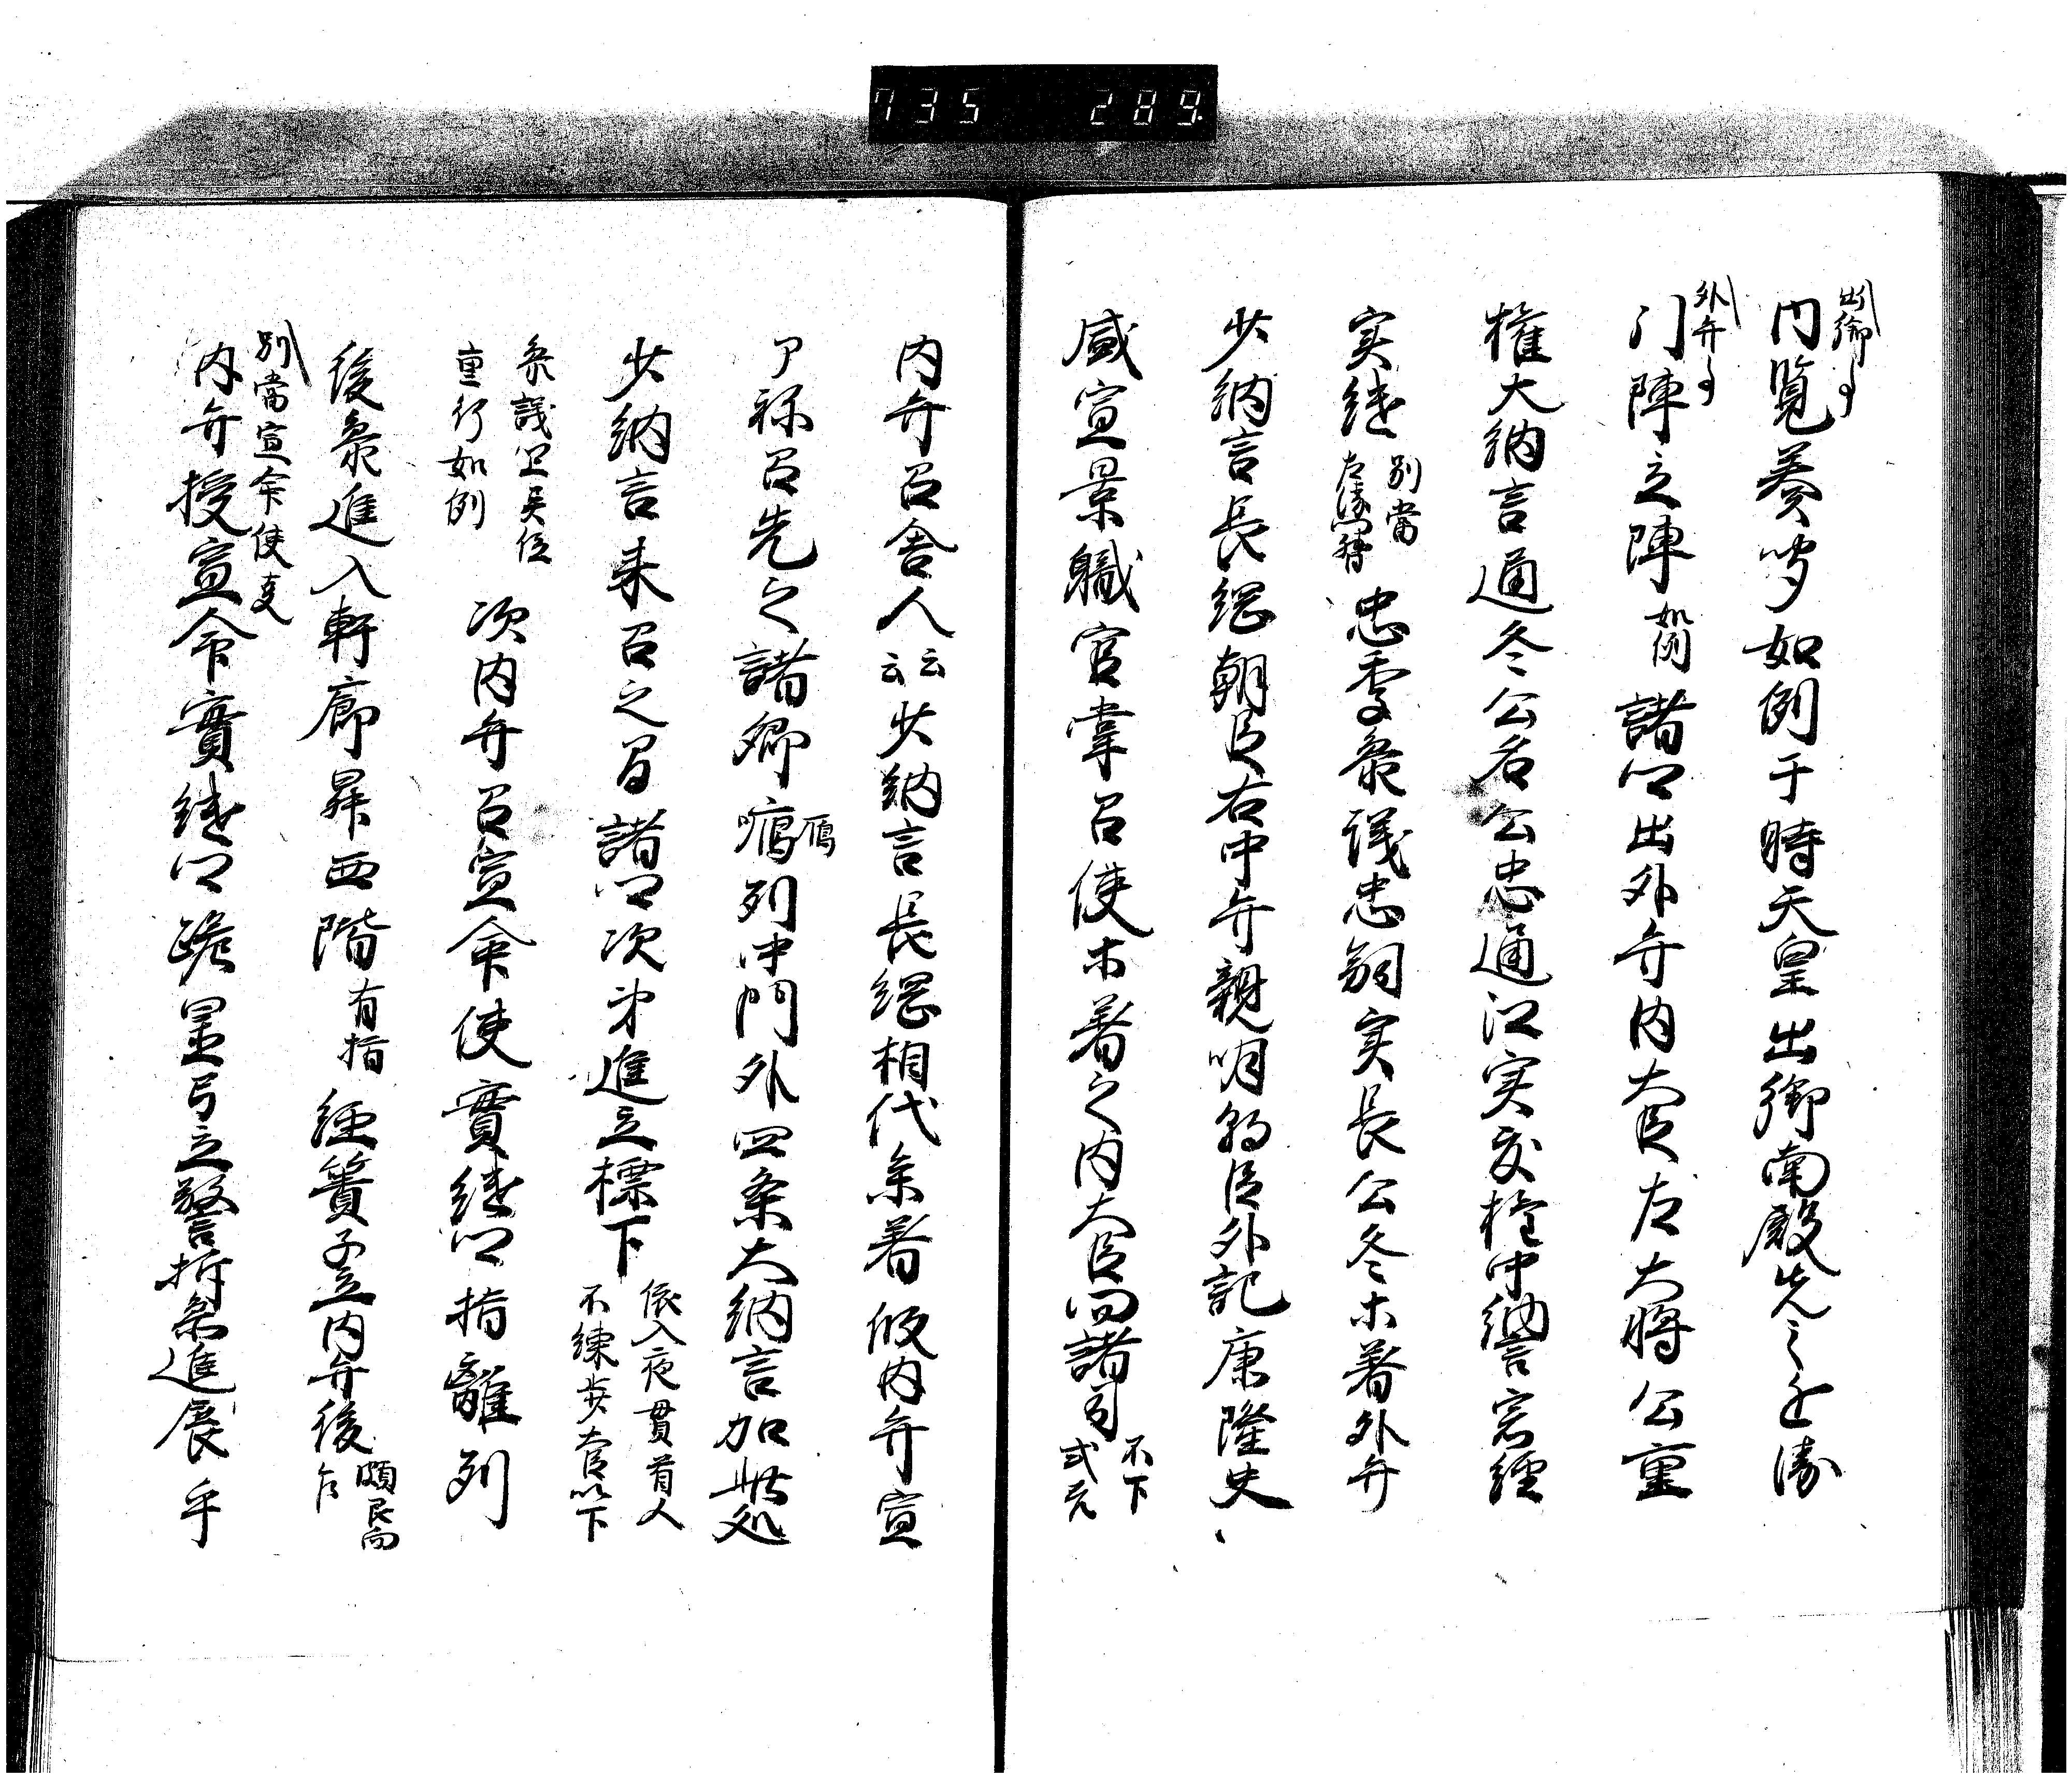 735 289
出御事
内覧奏聞如例于時天皇出御南殿先之近衛
外弁事
門陣之陣如例諸卿出外弁内大臣左大将公重
権大納言通冬公名公忠通江実夏権中納言宣経
実継別當左衛門督忠季参議忠嗣実長公冬等著外弁
少納言長綱朝臣右中弁親明朝臣外記康隆史
盛宣景職官掌召使等着之内大臣問諸司不下式充
内弁召舎人云云少納言長綱相代参着版内弁宣
刀祢召先之諸卿鴈列中門外四条大納言加此処
鴈
少納言来召之間諸卿次第進立標下依入夜貫首人不練歩大臣以下
参議以上異位重行如例次内弁召宣命使実継卿揖離列
後参進入軒廊昇西階有揖経簀子立内弁後頗艮向
別當宣命使事
内弁授宣命實継卿跪置弓立警折参進展手